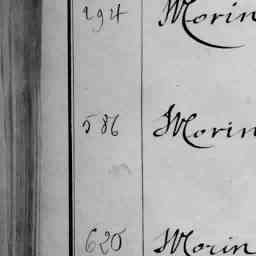 294 Morin
586 Morin
620 Morin